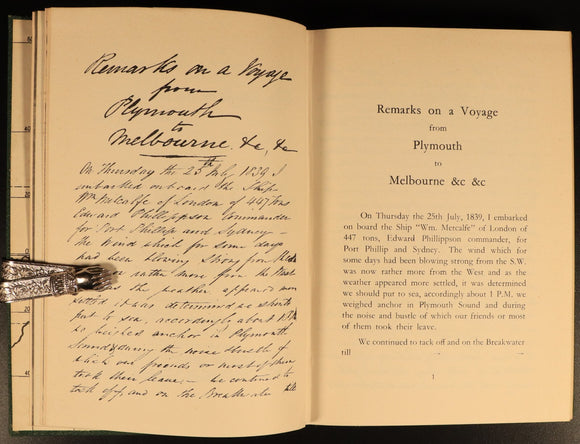 Remarks on a Voyage
from
Plymouth
to
Melbourne. &c, &c
On Thursday the 25th July, 1839, I
embarked on board the Ship
Wm Metcalfe of London of 447 tons
Edward Phillippson Commander
for Port Phillip and Sydney -
the wind which for some days
had been blowing strong from
now rather more from the West
and as the weather appeared more
settled it was determined we should
put to sea, accordingly about 1 P.M.
we weighed anchor in Plymouth
Sound & during the noise & bustle of
which our friends or most of them
took their leave - We continued to
tack off and on the Breakwater till
Remarks on a Voyage
from
Plymouth
to
Melbourne &c &c
On Thursday the 25th July, 1839, I embarked
on board the Ship "Wm. Metcalfe" of London of
447 tons, Edward Phillippson commander, for
Port Phillip and Sydney. The wind which for
some days had been blowing strong from the S.W.
was now rather more from the West and as the
weather appeared more settled, it was determined
we should put to sea, accordingly about 1 P.M. we
weighed anchor in Plymouth Sound and during
the noise and bustle of which our friends or most
of them took their leave.
We continued to tack off and on the Breakwater
till - - -
1